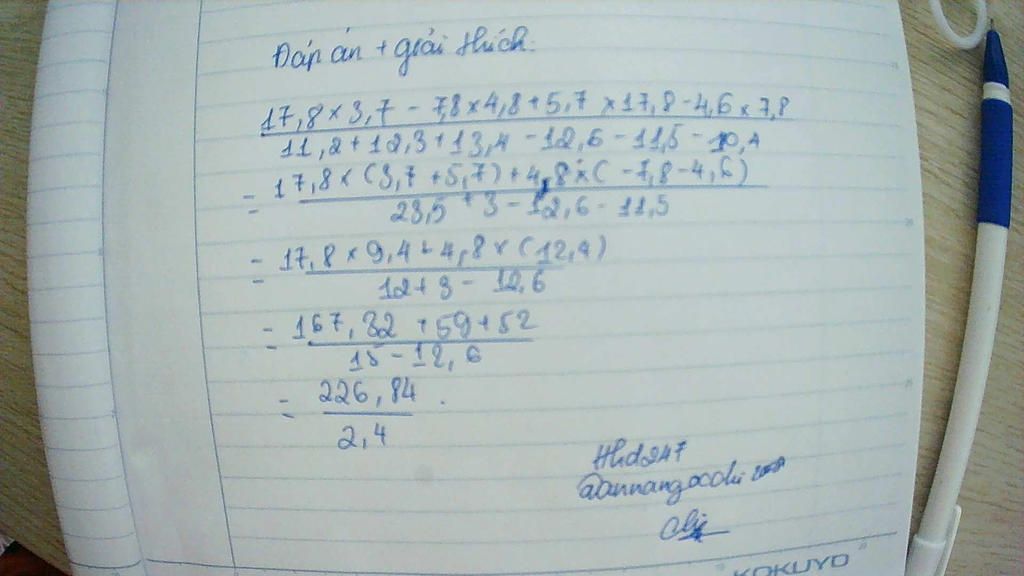 Đáp án + giải thích:
17,8 × 3,7 - 7,8 × 4,8 + 5,7 × 17,8 - 4,6 × 7,8
11,2 + 12,3 + 13,4 - 12,6 - 11,5 - 10,4
= 17,8 × (3,7 + 5,7) + 4,8 × ( -7,8 - 4,6)
23,5 + 3 - 12,6 - 11,5
= 17,8 × 9,4 + 4,8 × (12,4)
12 + 3 - 12,6
= 167,32 + 59 + 52
15 - 12,6
= 226,84
2,4
Hhd247
KOKUYO